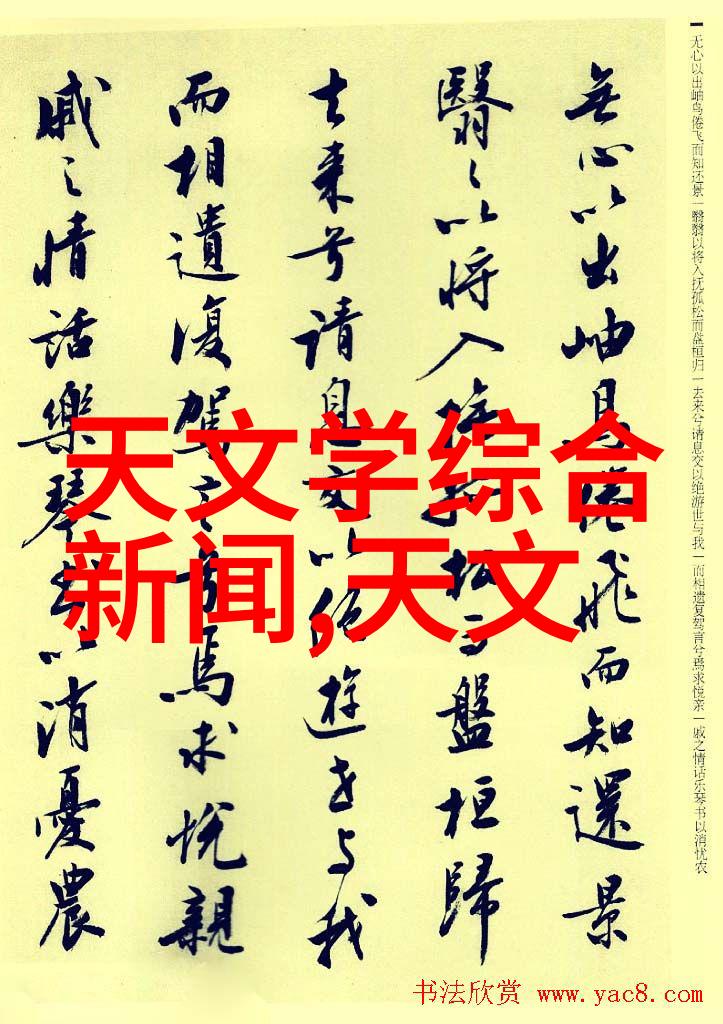 無心以出岫鳥倦飛而知還景
翳〻以將入撫孤松而盤桓歸
去来兮请息交以绝遊世与我
而相遺復駕言兮焉求悦親
戚之情話樂琴書以消憂農
无心以出岫鸟倦飞而知还景一翳翳以将入抚孤松而盘桓归一去来兮请息交以绝游世与我一而相遗复驾言兮焉求悦亲一戚之情话乐琴书以消忧农
天文学综合
新闻,天文
书法欣赏 www.yac8.com